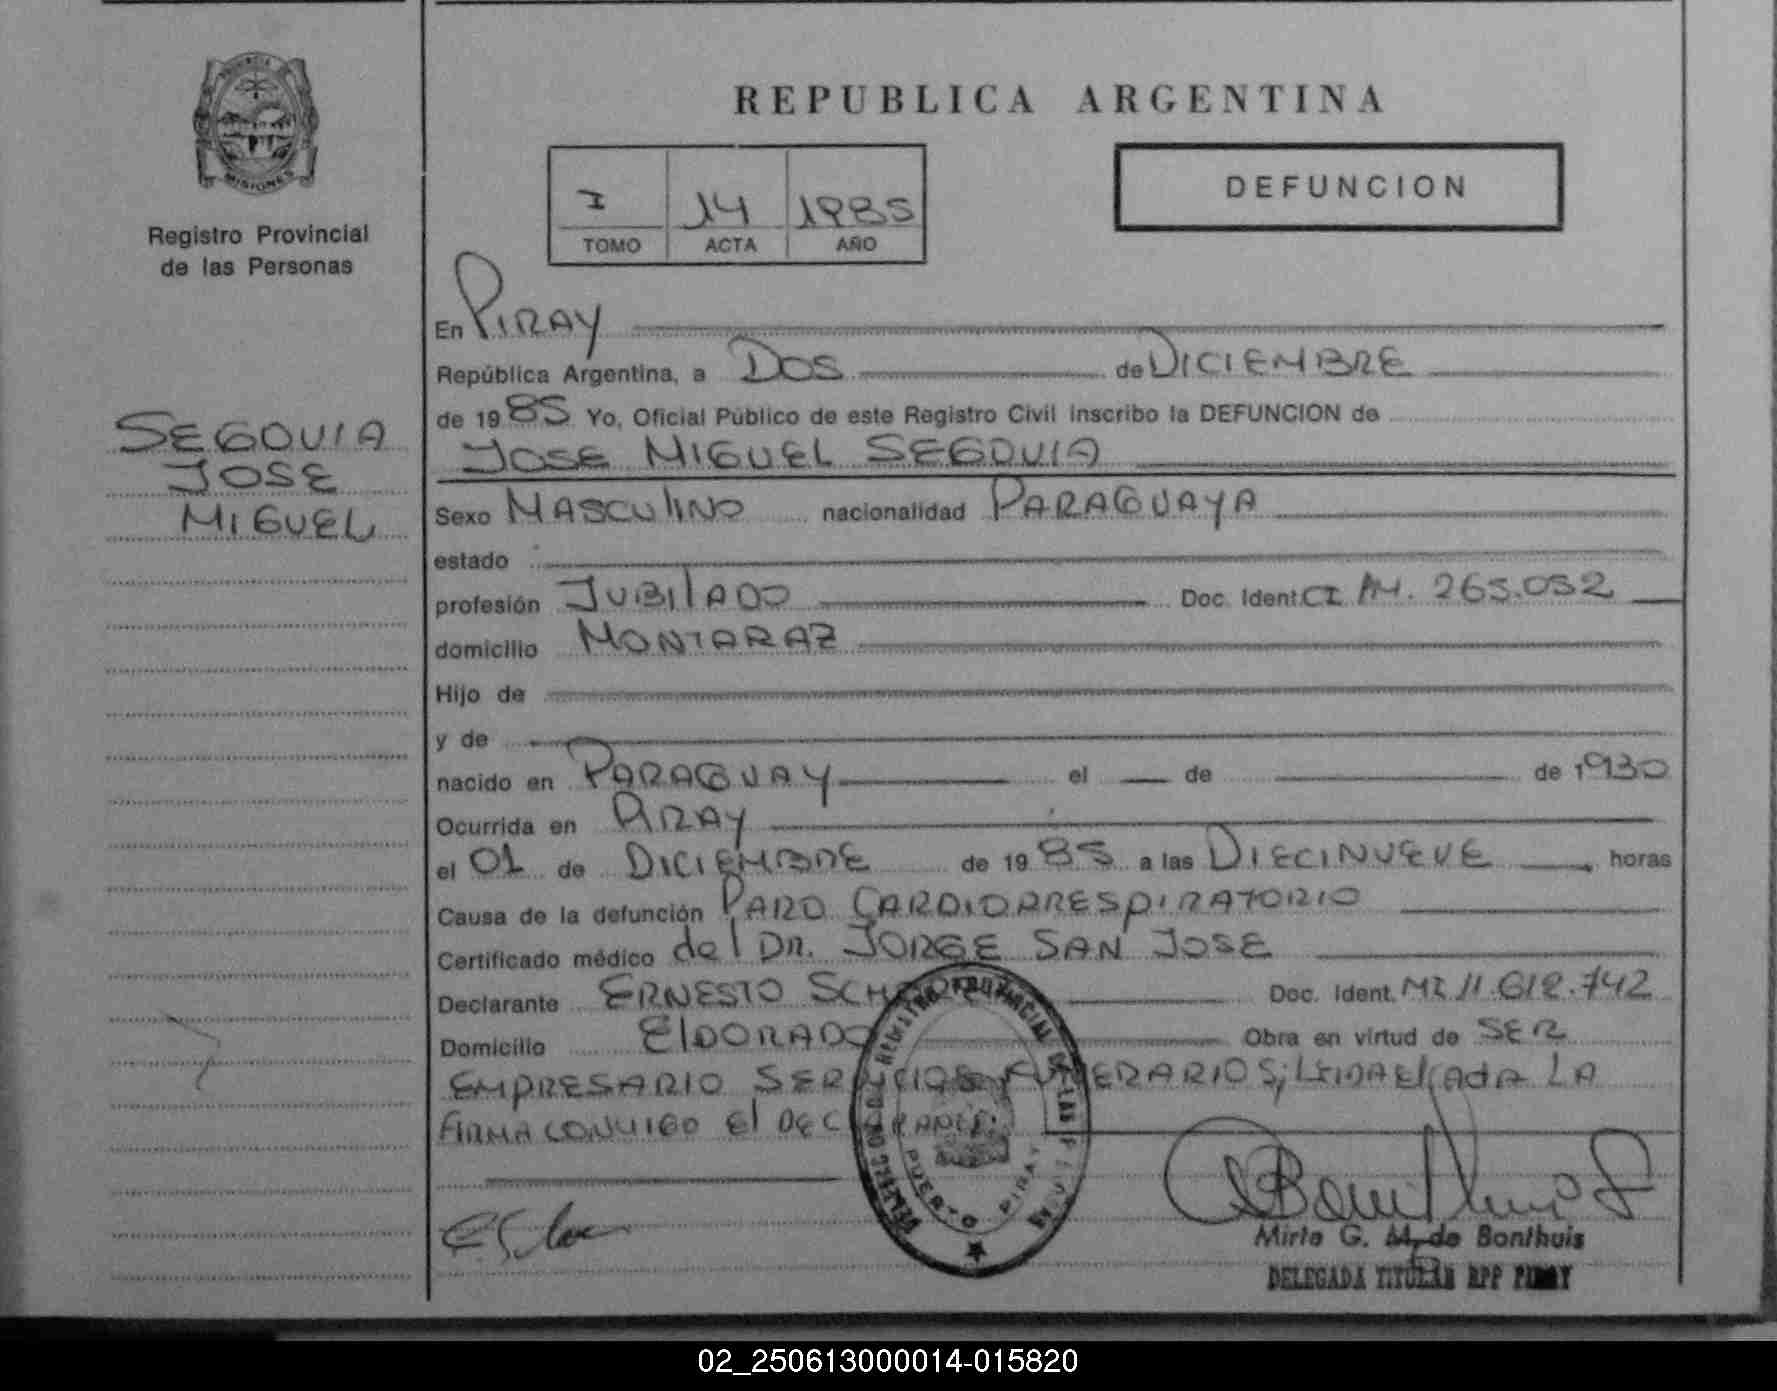 PROVINCIA DE
MISIONES
Registro Provincial
de las Personas
SEGOVIA
JOSE
MIGUEL
REPUBLICA ARGENTINA
I 14 1985
TOMO ACTA AÑO
DEFUNCION
En PIRAY
República Argentina, a DOS de DICIEMBRE
de 1985 Yo, Oficial Público de este Registro Civil inscribo la DEFUNCION de
JOSE MIGUEL SEGOVIA
Sexo MASCULINO nacionalidad PARAGUAYA
estado
profesión JUBILADO Doc. Ident. CI Nº. 265.052
domicilio MONTARAZ
Hijo de
y de
nacido en PARAGUAY el de de 1930
Ocurrida en PIRAY
el 01 de DICIEMBRE de 1985 a las DIECINUEVE horas
Causa de la defunción PARO CARDIORRESPIRATORIO
Certificado médico del DR. JORGE SAN JOSE
Declarante ERNESTO Doc. Ident. MI 11.612.742
Domicilio ELDORADO Obra en virtud de SER
EMPRESARIO SERVICIOS FUNERARIOS; LEIDA EL ACTA LA
FIRMA CONMIGO El DECLARANTE.
REGISTRO PROVINCIAL DE LAS PERSONAS
PUERTO PIRAY
Mirta G. M. de Bonthuis
DELEGADA TITULAR RPP PIRAY
02_250613000014-015820